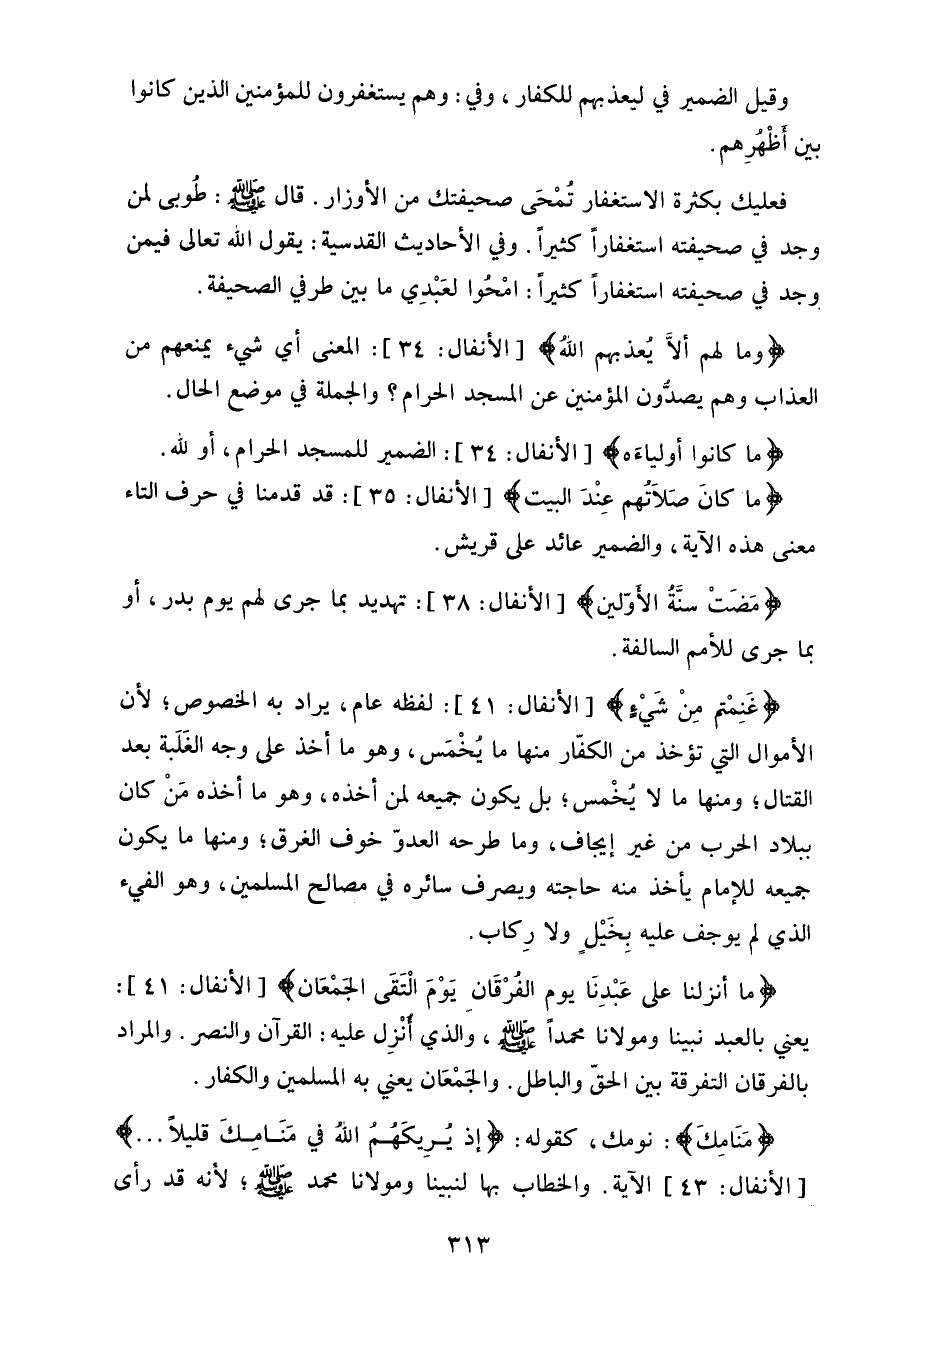 وقيل الضمير في ليعذبهم للكفار ، وفي : وهم يستغفرون للمؤمنين الذين كانوا
بين أَظْهُرِهم .
فعليك بكثرة الاستغفار تُمْحَى صحيفتك من الأوزار . قال ﷺ : طُوبى لمن
وجد في صحيفته استغفاراً كثيراً . وفي الأحاديث القدسية : يقول الله تعالى فيمن
وجد في صحيفته استغفاراً كثيراً : امْحُوا لعَبْدِي ما بين طرفي الصحيفة .
﴿وما لهم ألاَّ يُعذبهم اللهُ﴾ [ الأنفال : ٣٤ ] : المعنى أي شيء يمنعهم من
العذاب وهم يصدُّون المؤمنين عن المسجد الحرام ؟ والجملة في موضع الحال .
﴿ما كانوا أولياءَه﴾ [ الأنفال : ٣٤ ] : الضمير للمسجد الحرام ، أو لله .
﴿ما كانَ صلاَتُهم عِنْدَ البيت﴾ [ الأنفال : ٣٥ ] : قد قدمنا في حرف التاء
معنى هذه الآية ، والضمير عائد على قريش .
﴿مَضَتْ سنَّةُ الأَوّلين﴾ [ الأنفال : ٣٨ ] : تهديد بما جرى لهم يوم بدر ، أو
بما جرى للأمم السالفة .
﴿غَنِمْتم مِنْ شَيْءٍ﴾ [ الأنفال : ٤١ ] : لفظه عام ، يراد به الخصوص ؛ لأن
الأموال التي تؤخذ من الكفّار منها ما يُخْمَس ، وهو ما أخذ على وجه الغَلَبة بعد
القتال ؛ ومنها ما لا يُخْمس ؛ بل يكون جميعه لمن أخذه ، وهو ما أخذه مَنْ كان
ببلاد الحرب من غير إيجاف ، وما طرحه العدوّ خوف الغرق ؛ ومنها ما يكون
جميعه للإمام يأخذ منه حاجته ويصرف سائره في مصالح المسلمين ، وهو الفيء
الذي لم يوجف عليه بِخَيْلٍ ولا رِكاب .
﴿ما أنزلنا على عَبْدِنَا يوم الفُرْقَانِ يَوْمَ الْتَقَى الجَمْعَان﴾ [ الأنفال : ٤١ ] :
يعني بالعبد نبينا ومولانا محمداً ﷺ ، والذي أُنْزِل عليه : القرآن والنصر . والمراد
بالفرقان التفرقة بين الحقّ والباطل . والجَمْعَان يعني به المسلمين والكفار .
﴿مَنَامِكَ﴾ : نومك ، كقوله : ﴿إذ يُرِيكَهُمُ اللهُ في مَنَامِكَ قليلاً ...﴾
[ الأنفال : ٤٣ ] الآية . والخطاب بها لنبينا ومولانا محمد ﷺ ؛ لأنه قد رأى
٣١٣